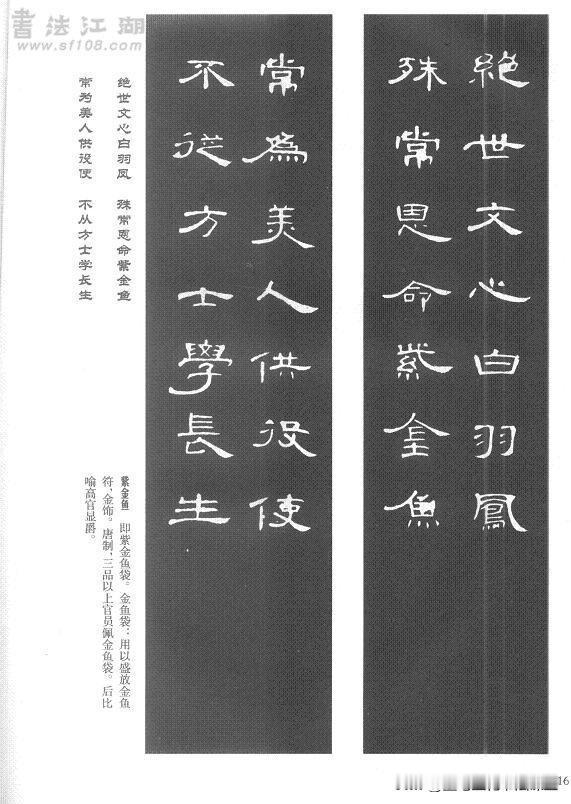 書法江湖
www.sf108.com
絕世文心白羽鳳
殊常恩命紫金魚
常為美人供役使
不從方士學長生
绝世文心白羽凤 殊常恩命紫金鱼
常为美人供役使 不从方士学长生
紫金鱼 即紫金鱼袋。金鱼袋：用以盛放金鱼
符，金饰。唐制，三品以上官员佩金鱼袋。后比
喻高官显爵。
16